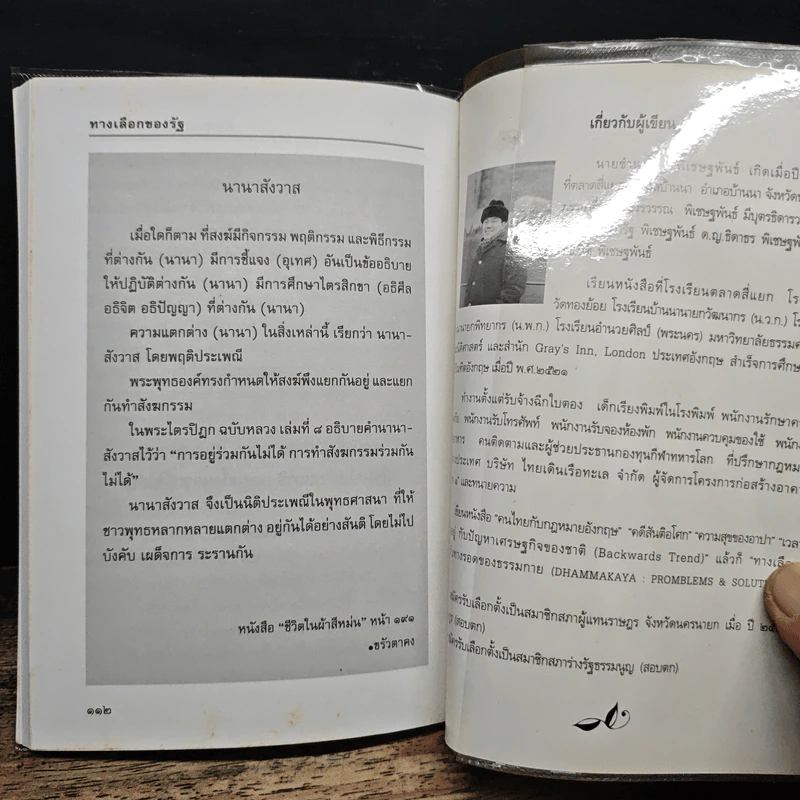 ทางเลือกของรัฐ
นานาสังวาส
เมื่อใดก็ตาม ที่สงฆ์มีกิจกรรม พฤติกรรม และพิธีกรรม
ที่ต่างกัน (นานา) มีการชี้แจง (อุเทศ) อันเป็นข้ออธิบาย
ให้ปฏิบัติต่างกัน (นานา) มีการศึกษาไตรสิกขา (อธิศีล
อธิจิต อธิปัญญา) ที่ต่างกัน (นานา)
ความแตกต่าง (นานา) ในสิ่งเหล่านี้ เรียกว่า นานา-
สังวาส โดยพฤติประเพณี
พระพุทธองค์ทรงกำหนดให้สงฆ์พึงแยกกันอยู่ และแยก
กันทำสังฆกรรม
ในพระไตรปิฎก ฉบับหลวง เล่มที่ ๘ อธิบายคำนานา-
สังวาสไว้ว่า “การอยู่ร่วมกันไม่ได้ การทำสังฆกรรมร่วมกัน
ไม่ได้”
นานาสังวาส จึงเป็นนิติประเพณีในพุทธศาสนา ที่ให้
ชาวพุทธหลากหลายแตกต่าง อยู่กันได้อย่างสันติ โดยไม่ไป
บังคับ เผด็จการ ระรานกัน
หนังสือ “ชีวิตในผ้าสีหม่น” หน้า ๑๙๑
•ขรัวตาคง
๑๑๒
เกี่ยวกับผู้เขียน
พิเชษฐพันธ์ เกิดเมื่อปี
ที่ตลาดสี่แยก บ้านนา อำเภอบ้านนา จังหวัด
พิเชษฐพันธ์ มีบุตรธิดา
พิเชษฐพันธ์ ด.ญ.ธิดาธร พิเชษฐ
พิเชษฐพันธ์
เรียนหนังสือที่โรงเรียนตลาดสี่แยก
วัดทองย้อย โรงเรียนบ้านนานายกวัฒนากร (น.ว.ก.)
นายกพิทยากร (น.พ.ก.) โรงเรียนอำนวยศิลป์ (พระนคร) มหาวิทยาลัยธรรม
นิติศาสตร์ และสำนัก Gray's Inn, London ประเทศอังกฤษ สำเร็จการศึกษา
อังกฤษ เมื่อปี พ.ศ.๒๕๒๑
ทำงานตั้งแต่รับจ้างฉีกใบตอง เด็กเรียงพิมพ์ในโรงพิมพ์ พนักงานรักษา
พนักงานรับโทรศัพท์ พนักงานรับจองห้องพัก พนักงานควบคุมของใช้
คนติดตามและผู้ช่วยประธานกองทุนกีฬาทหารโลก ที่ปรึกษากฎหมาย
ประเทศ บริษัท ไทยเดินเรือทะเล จำกัด ผู้จัดการโครงการก่อสร้าง
และทนายความ
เขียนหนังสือ “คนไทยกับกฎหมายอังกฤษ” “คดีสันติอโศก” “ความสุขของอาปา”
กับปัญหาเศรษฐกิจของชาติ (Backwards Trend)” แล้วก็ “ทางเลือก
ทางรอดของธรรมกาย (DHAMMAKAYA : PROMBLEMS &
สมัครรับเลือกตั้งเป็นสมาชิกสภาผู้แทนราษฎร จังหวัดนครนายก เมื่อ ปี
(สอบตก)
สมัครรับเลือกตั้งเป็นสมาชิกสภาร่างรัฐธรรมนูญ (สอบตก)